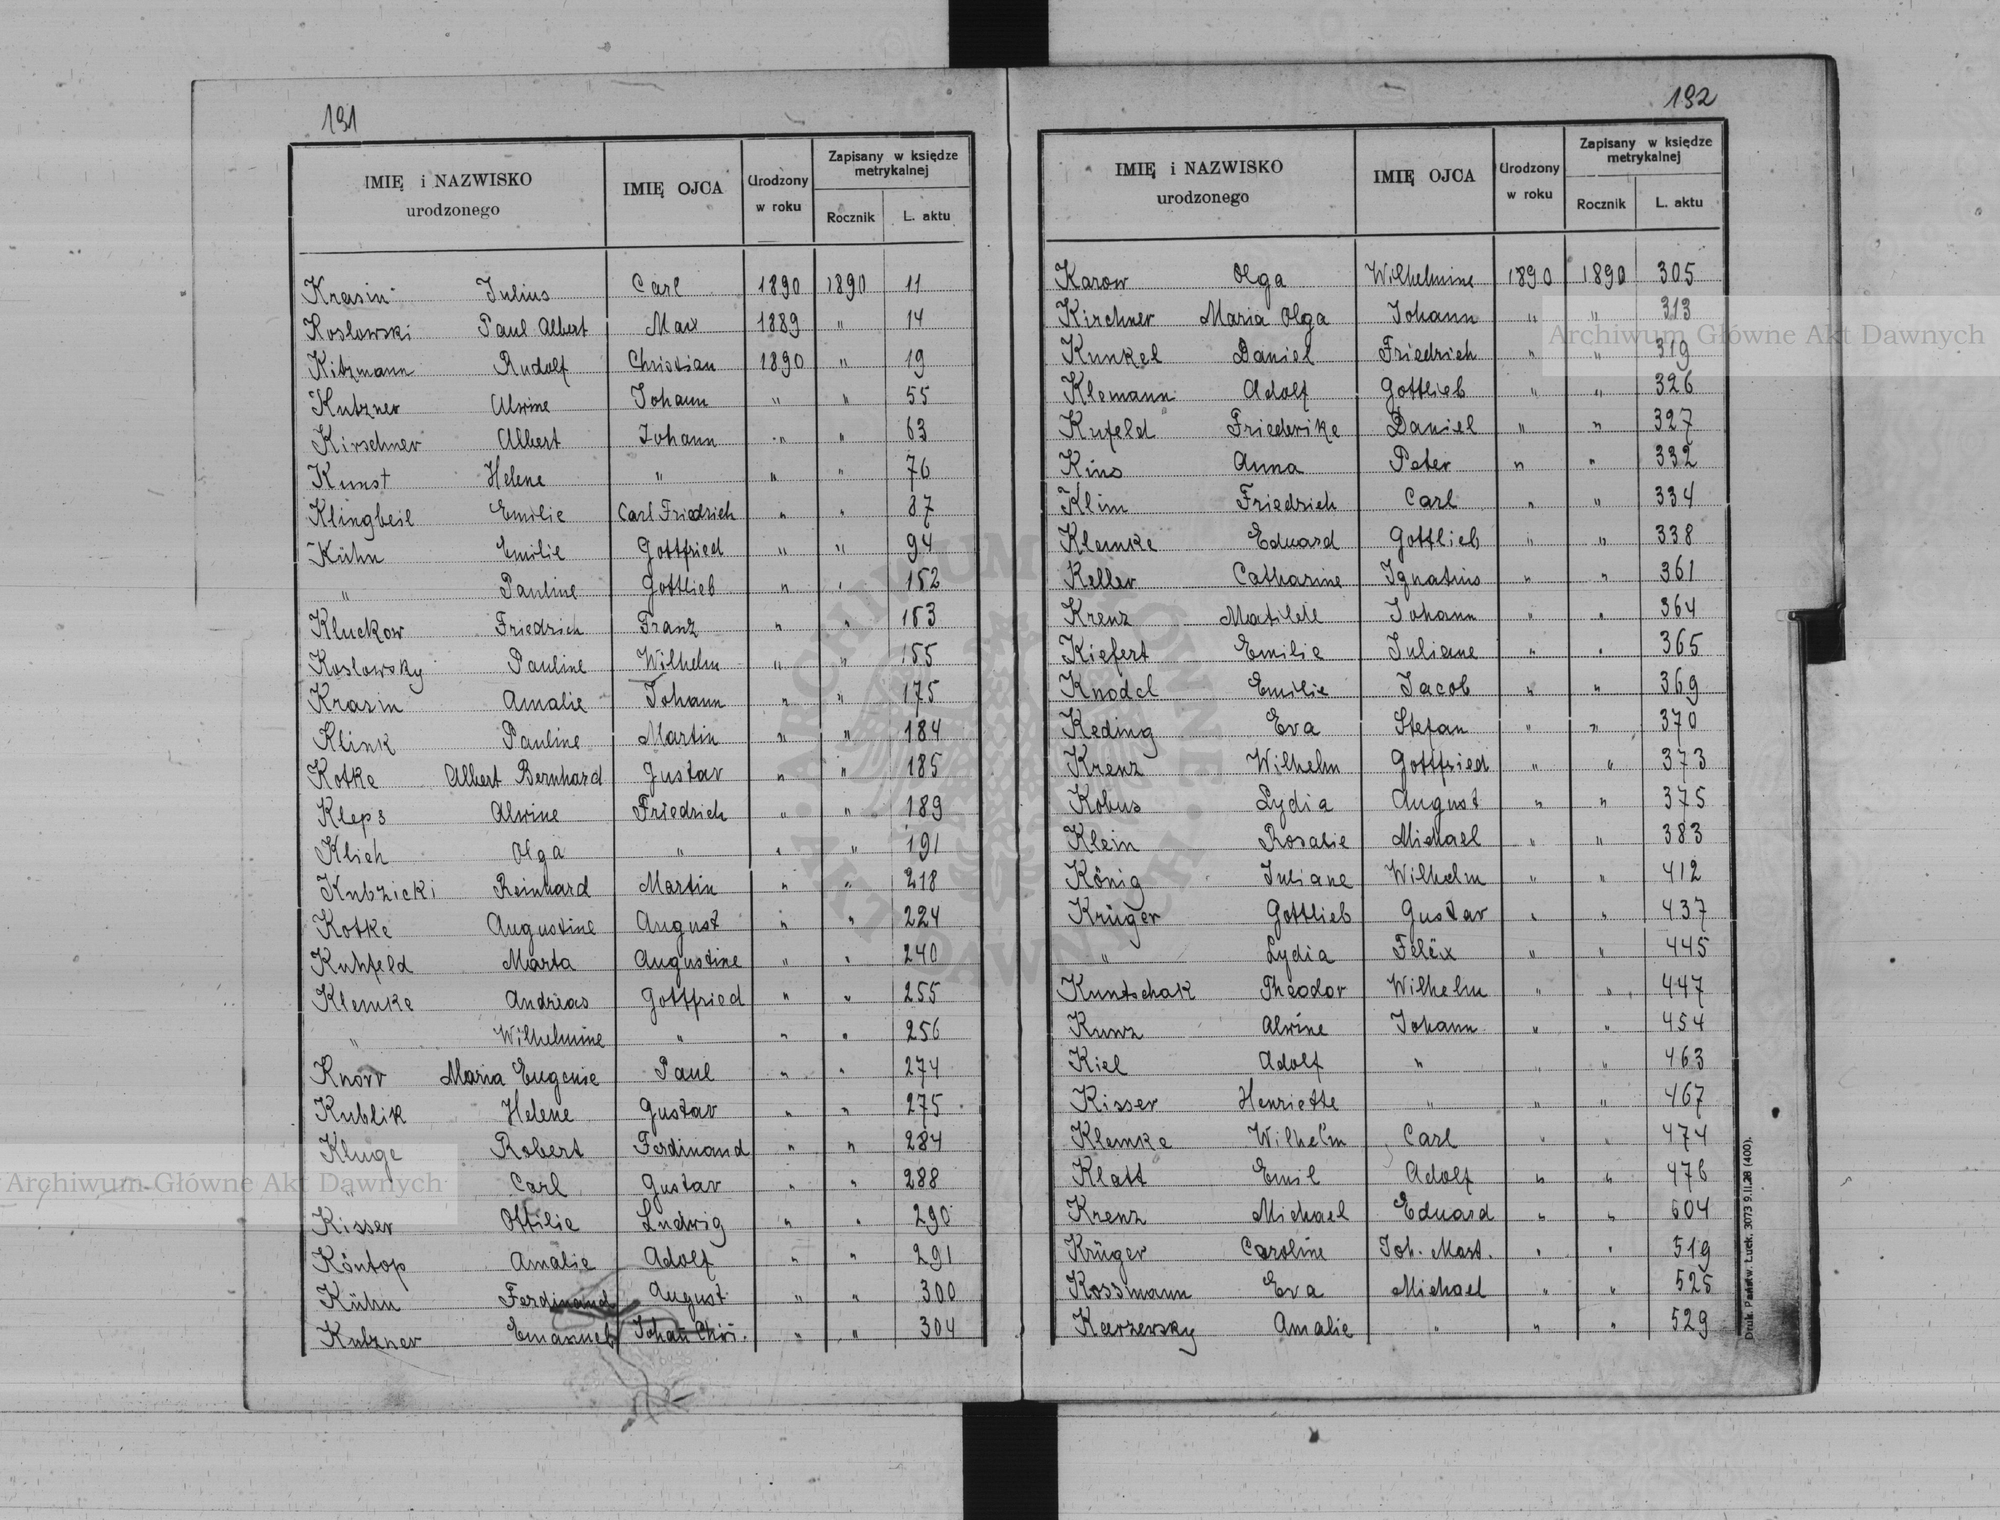 191
IMIĘ i NAZWISKO urodzonego IMIĘ OJCA Urodzony w roku Zapisany w księdze metrykalnej Rocznik L. aktu
Krasin Julius Carl 1890 1890 11
Koslowski Paul Albert Max 1889 " 14
Kitzmann Rudolf Christian 1890 " 19
Kutzner Alwine Johann " " 55
Kirschner Albert Johann " " 63
Kunst Helene " " " 76
Klingbeil Emilie Carl Friedrich " " 87
Kühn Emilie Gottfried " " 94
" Pauline Gottlieb " " 152
Kluckow Friedrich Franz " " 153
Koslowsky Pauline Wilhelm " " 155
Krasin Amalie Johann " " 175
Klink Pauline Martin " " 184
Kotke Albert Bernhard Gustav " " 185
Kleps Alwine Friedrich " " 189
Klich Olga " " " 191
Kubzicki Reinhard Martin " " 218
Kotke Augustine August " " 224
Kuhfeld Marta Augustine " " 240
Klemke Andreas Gottfried " " 255
" Wilhelmine " " " 256
Knorr Maria Eugenie Paul " " 274
Kublik Helene Gustav " " 275
Kluge Robert Ferdinand " " 284
" Carl Gustav " " 288
Kisser Ottilie Ludwig " " 290
Köntop Amalie Adolf " " 291
Kühn Ferdinand August " " 300
Kutzner Emanuel Johan Chri. " " 304
192
IMIĘ i NAZWISKO urodzonego IMIĘ OJCA Urodzony w roku Zapisany w księdze metrykalnej Rocznik L. aktu
Karow Olga Wilhelmine 1890 1890 305
Kirchner Maria Olga Johann " " 313
Kunkel Daniel Friedrich " " 319
Klemann Adolf Gottlieb " " 326
Kufeld Friederike Daniel " " 327
Kins Anna Peter " " 332
Klim Friedrich Carl " " 334
Klemke Eduard Gottlieb " " 338
Keller Catharine Ignatius " " 361
Krenz Matilde Johann " " 364
Kiefert Emilie Juliane " " 365
Knodel Emilie Jacob " " 369
Keding Eva Stefan " " 370
Krenz Wilhelm Gottfried " " 373
Kobus Lydia August " " 375
Klein Rosalie Michael " " 383
König Juliane Wilhelm " " 412
Krüger Gottlieb Gustav " " 437
" Lydia Felix " " 445
Kuntschak Theodor Wilhelm " " 447
Kunz Alwine Johann " " 454
Kiel Adolf " " " 463
Kisser Henriette " " " 467
Klemke Wilhelm Carl " " 474
Klatt Emil Adolf " " 476
Krenz Michael Eduard " " 504
Krüger Caroline Joh. Mart. " " 519
Kossmann Eva Michael " " 525
Karzersky Amalie " " " 529
Druk. Państw. Łuck. 3073 9.II.28 (400).
Archiwum Główne Akt Dawnych
Archiwum Główne Akt Dawnych
ARCHIWUM GŁÓWNE AKT DAWNYCH